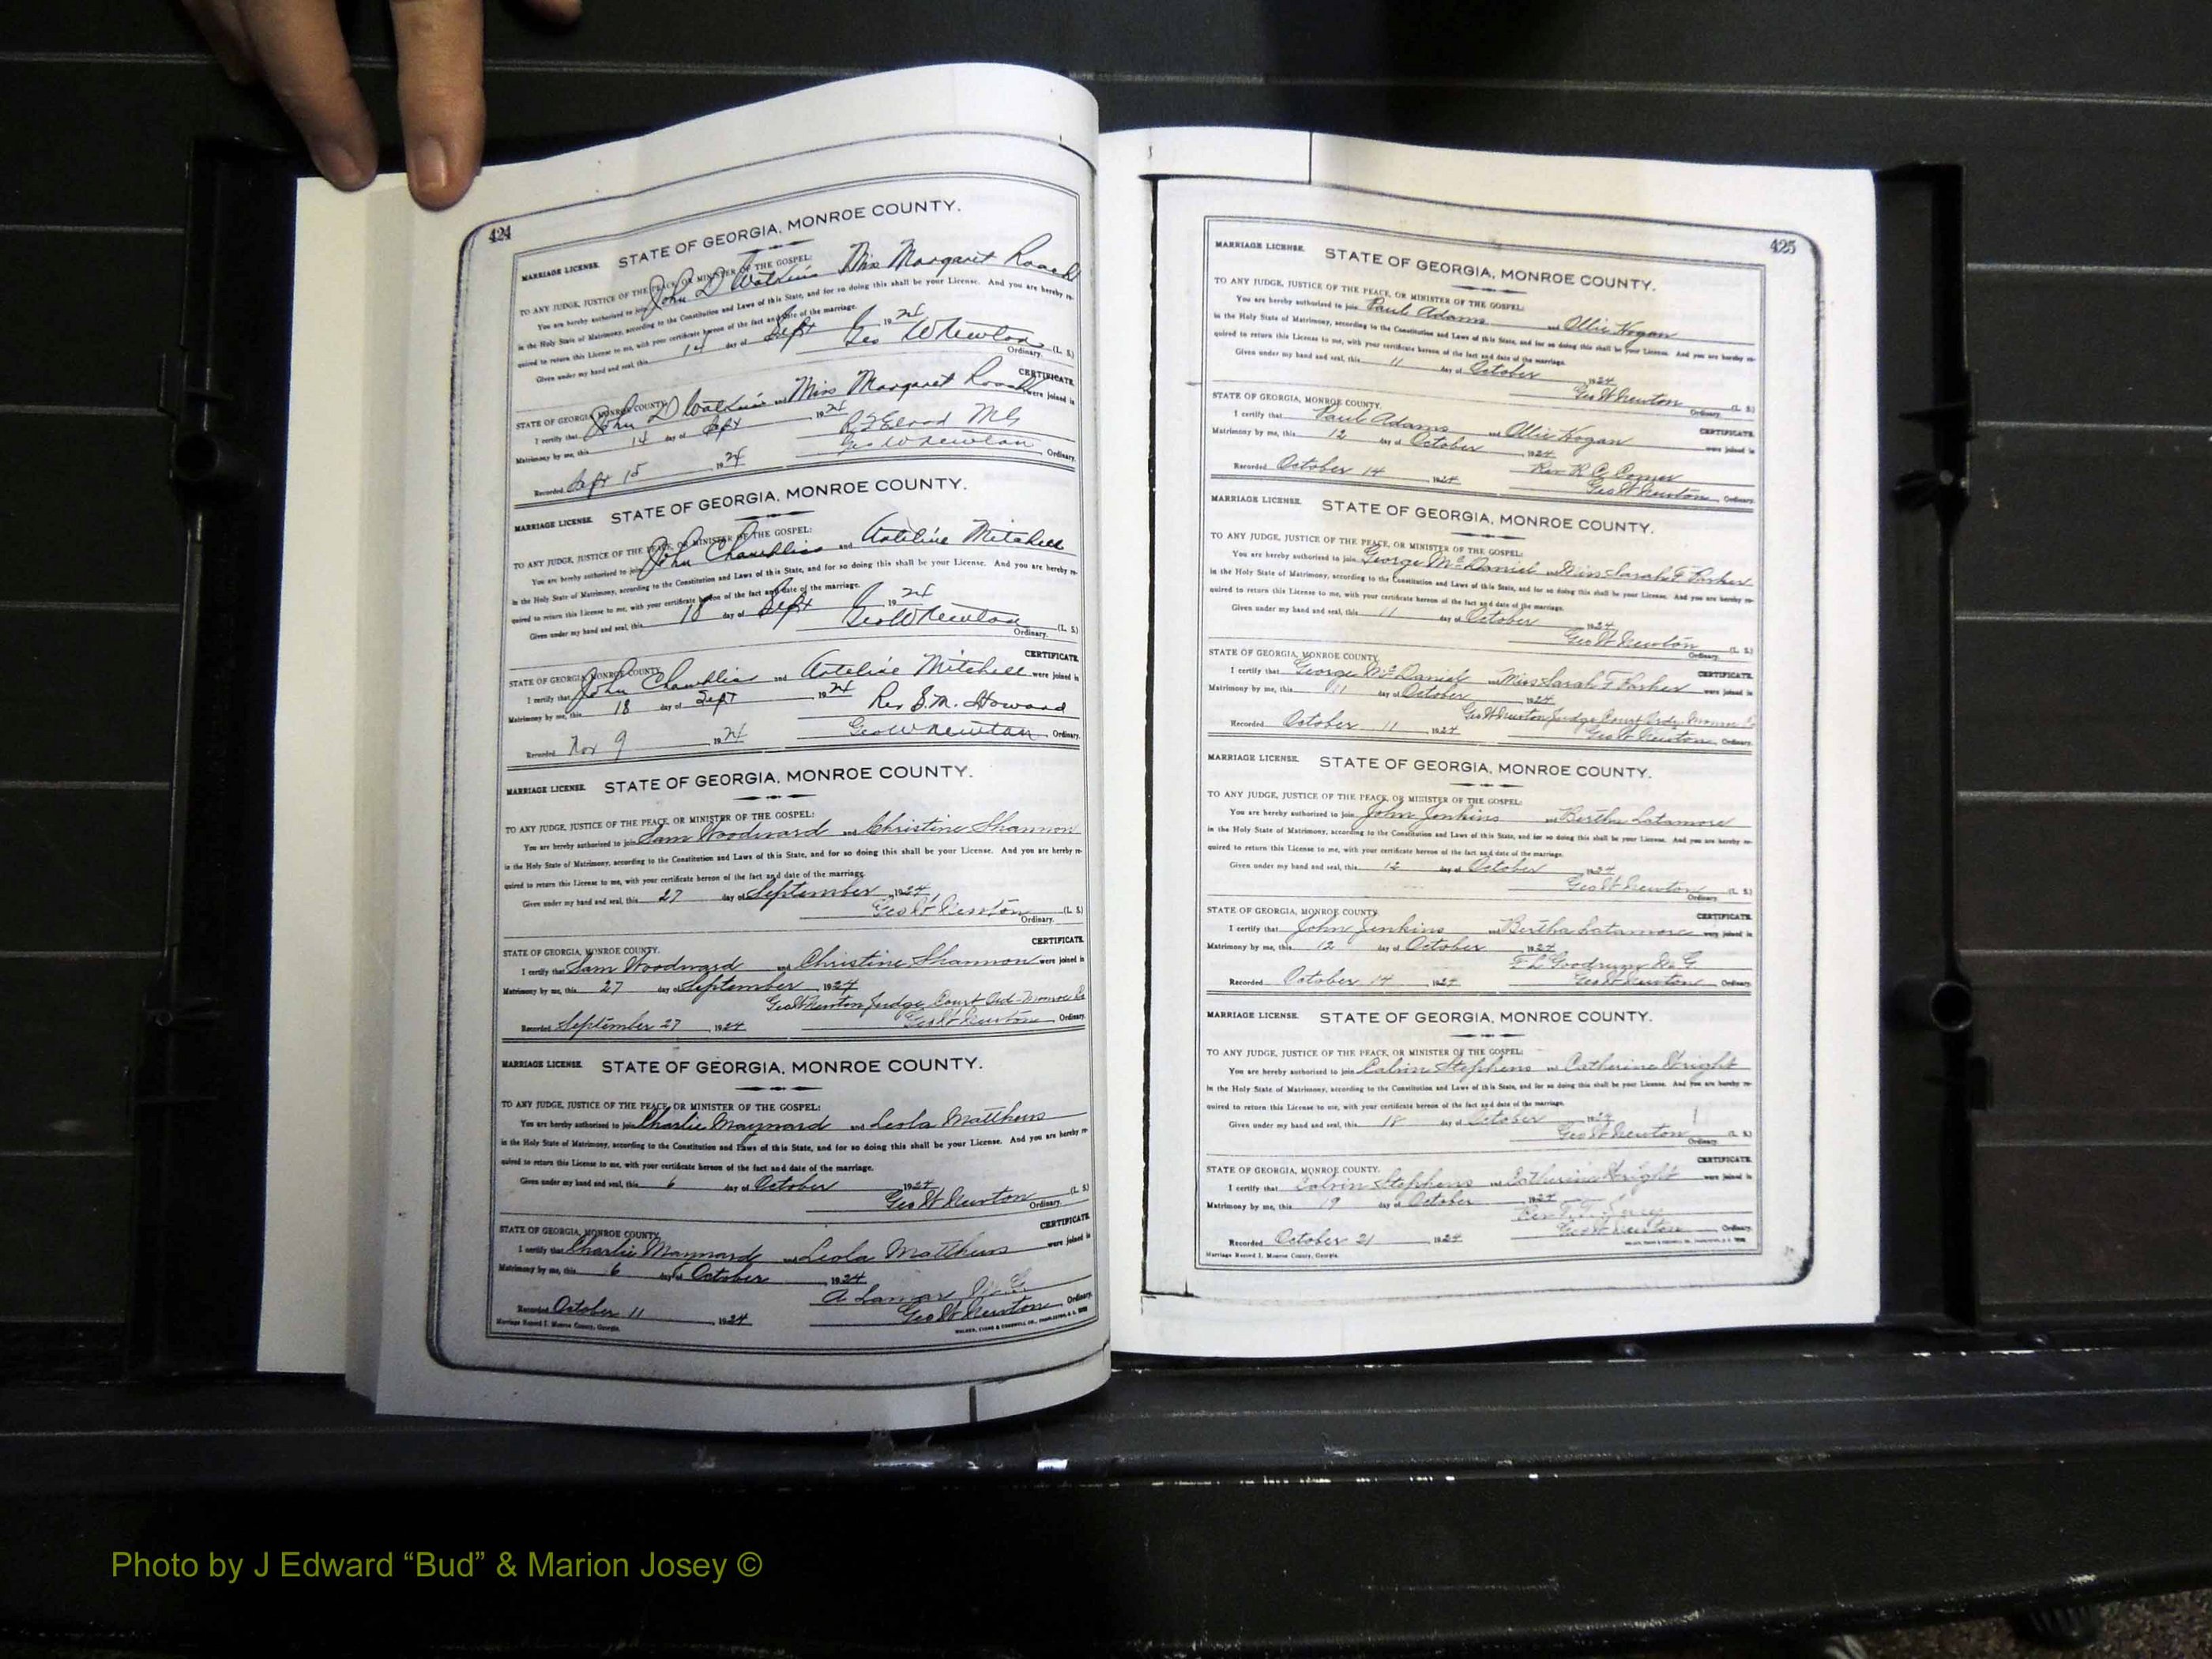 424
MARRIAGE LICENSE. STATE OF GEORGIA, MONROE COUNTY.
TO ANY JUDGE, JUSTICE OF THE PEACE, OR MINISTER OF THE GOSPEL:
You are hereby authorized to join John D Watkins Miss Margaret Roach
in the Holy State of Matrimony, according to the Constitution and Laws of this State, and for so doing this shall be your License. And you are hereby re-
quired to return this License to me, with your certificate hereon of the fact and date of the marriage.
Given under my hand and seal, this 14 day of Sept 1924
Geo W Newton (L. S.)
Ordinary.
CERTIFICATE.
STATE OF GEORGIA, MONROE COUNTY.
I certify that John D Watkins and Miss Margaret Roach were joined in
Matrimony by me, this 14 day of Sept 1924
MG
Recorded Sept 15 1924 Geo W Newton Ordinary.
MARRIAGE LICENSE. STATE OF GEORGIA, MONROE COUNTY.
TO ANY JUDGE, JUSTICE OF THE PEACE, OR MINISTER OF THE GOSPEL:
You are hereby authorized to join John Chambliss and Mitchell
in the Holy State of Matrimony, according to the Constitution and Laws of this State, and for so doing this shall be your License. And you are hereby re-
quired to return this License to me, with your certificate hereon of the fact and date of the marriage.
Given under my hand and seal, this 18 day of Sept 1924
Geo W Newton (L. S.)
Ordinary.
CERTIFICATE.
STATE OF GEORGIA, MONROE COUNTY.
I certify that John Chambliss and Mitchell were joined in
Matrimony by me, this 18 day of Sept 1924
Rev S. M. Howard
Recorded Nov 9 1924 Geo W Newton Ordinary.
MARRIAGE LICENSE. STATE OF GEORGIA, MONROE COUNTY.
TO ANY JUDGE, JUSTICE OF THE PEACE, OR MINISTER OF THE GOSPEL:
You are hereby authorized to join Sam Woodward and Christine Shannon
in the Holy State of Matrimony, according to the Constitution and Laws of this State, and for so doing this shall be your License. And you are hereby re-
quired to return this License to me, with your certificate hereon of the fact and date of the marriage.
Given under my hand and seal, this 27 day of September 1924
Geo W Newton (L. S.)
Ordinary.
CERTIFICATE.
STATE OF GEORGIA, MONROE COUNTY.
I certify that Sam Woodward and Christine Shannon were joined in
Matrimony by me, this 27 day of September, 1924
Geo W Newton Judge Court Ord- Monroe Co
Recorded September 27, 1924 Geo W Newton, Ordinary.
MARRIAGE LICENSE. STATE OF GEORGIA, MONROE COUNTY.
TO ANY JUDGE, JUSTICE OF THE PEACE, OR MINISTER OF THE GOSPEL:
You are hereby authorized to join Charlie Maynard and Leola Matthews
in the Holy State of Matrimony, according to the Constitution and Laws of this State, and for so doing this shall be your License. And you are hereby re-
quired to return this License to me, with your certificate hereon of the fact and date of the marriage.
Given under my hand and seal, this 6 day of October 1924
Geo W Newton (L. S.)
Ordinary.
CERTIFICATE.
STATE OF GEORGIA, MONROE COUNTY.
I certify that Charlie Maynard and Leola Matthews were joined in
Matrimony by me, this 6 day of October, 1924
A Lamar M. G.
Recorded October 11, 1924 Geo W Newton, Ordinary.
Marriage Record I. Monroe County, Georgia. WALKER, EVANS & COGSWELL CO., CHARLESTON, S. C.
425
MARRIAGE LICENSE. STATE OF GEORGIA, MONROE COUNTY.
TO ANY JUDGE, JUSTICE OF THE PEACE, OR MINISTER OF THE GOSPEL:
You are hereby authorized to join Paul Adams and Ollie Hogan
in the Holy State of Matrimony, according to the Constitution and Laws of this State, and for so doing this shall be your License. And you are hereby re-
quired to return this License to me, with your certificate hereon of the fact and date of the marriage.
Given under my hand and seal, this 11 day of October 1924
Geo W Newton (L. S.)
Ordinary.
STATE OF GEORGIA, MONROE COUNTY.
CERTIFICATE.
I certify that Paul Adams and Ollie Hogan were joined in
Matrimony by me, this 12 day of October, 1924
Rev R. C.
Recorded October 14, 1924 Geo W Newton, Ordinary.
MARRIAGE LICENSE. STATE OF GEORGIA, MONROE COUNTY.
TO ANY JUDGE, JUSTICE OF THE PEACE, OR MINISTER OF THE GOSPEL:
You are hereby authorized to join George McDaniel and Miss Sarah F Parker
in the Holy State of Matrimony, according to the Constitution and Laws of this State, and for so doing this shall be your License. And you are hereby re-
quired to return this License to me, with your certificate hereon of the fact and date of the marriage.
Given under my hand and seal, this 11 day of October 1924
Geo W Newton (L. S.)
Ordinary.
STATE OF GEORGIA, MONROE COUNTY.
CERTIFICATE.
I certify that George McDaniel and Miss Sarah F Parker were joined in
Matrimony by me, this 11 day of October, 1924
Geo W Newton Judge Court Ordy. Monroe Co
Recorded October 11, 1924 Geo W Newton, Ordinary.
MARRIAGE LICENSE. STATE OF GEORGIA, MONROE COUNTY.
TO ANY JUDGE, JUSTICE OF THE PEACE, OR MINISTER OF THE GOSPEL:
You are hereby authorized to join John Jenkins and Bertha Latamore
in the Holy State of Matrimony, according to the Constitution and Laws of this State, and for so doing this shall be your License. And you are hereby re-
quired to return this License to me, with your certificate hereon of the fact and date of the marriage.
Given under my hand and seal, this 12 day of October 1924
Geo W Newton (L. S.)
Ordinary.
STATE OF GEORGIA, MONROE COUNTY.
CERTIFICATE.
I certify that John Jenkins and Bertha Latamore were joined in
Matrimony by me, this 12 day of October 1924
F L Goodrum M. G.
Recorded October 14, 1924 Geo W Newton, Ordinary.
MARRIAGE LICENSE. STATE OF GEORGIA, MONROE COUNTY.
TO ANY JUDGE, JUSTICE OF THE PEACE, OR MINISTER OF THE GOSPEL:
You are hereby authorized to join Calvin Stephens and Catherine Wright
in the Holy State of Matrimony, according to the Constitution and Laws of this State, and for so doing this shall be your License. And you are hereby re-
quired to return this License to me, with your certificate hereon of the fact and date of the marriage.
Given under my hand and seal, this 18 day of October 1924
Geo W Newton (L. S.)
Ordinary.
STATE OF GEORGIA, MONROE COUNTY.
CERTIFICATE.
I certify that Calvin Stephens and Catherine Wright were joined in
Matrimony by me, this 19 day of October, 1924
Rev
Recorded October 21, 1924 Geo W Newton, Ordinary.
Marriage Record I. Monroe County, Georgia.
Photo by J Edward “Bud” & Marion Josey ©